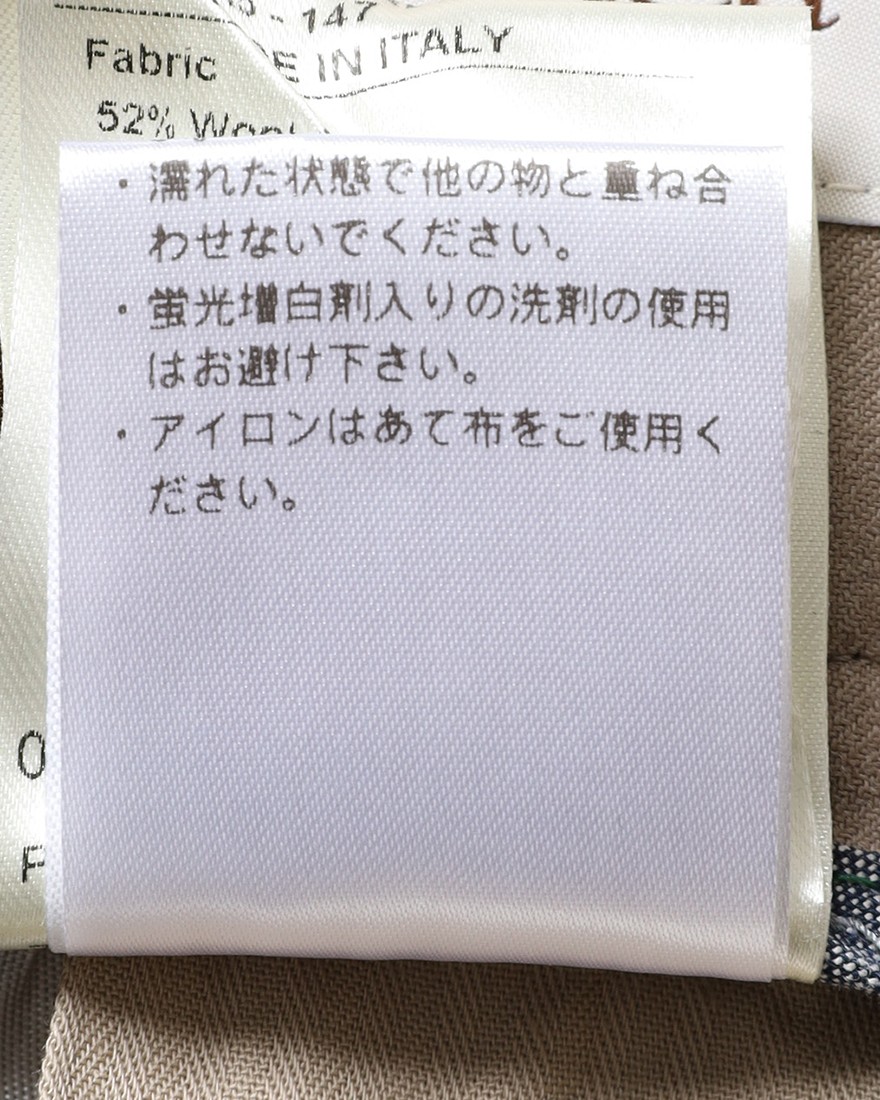 - 147
MADE IN ITALY
Fabric
52% Wool
・濡れた状態で他の物と重ね合
わせないでください。
・蛍光増白剤入りの洗剤の使用
はお避け下さい。
・アイロンはあて布をご使用く
ださい。